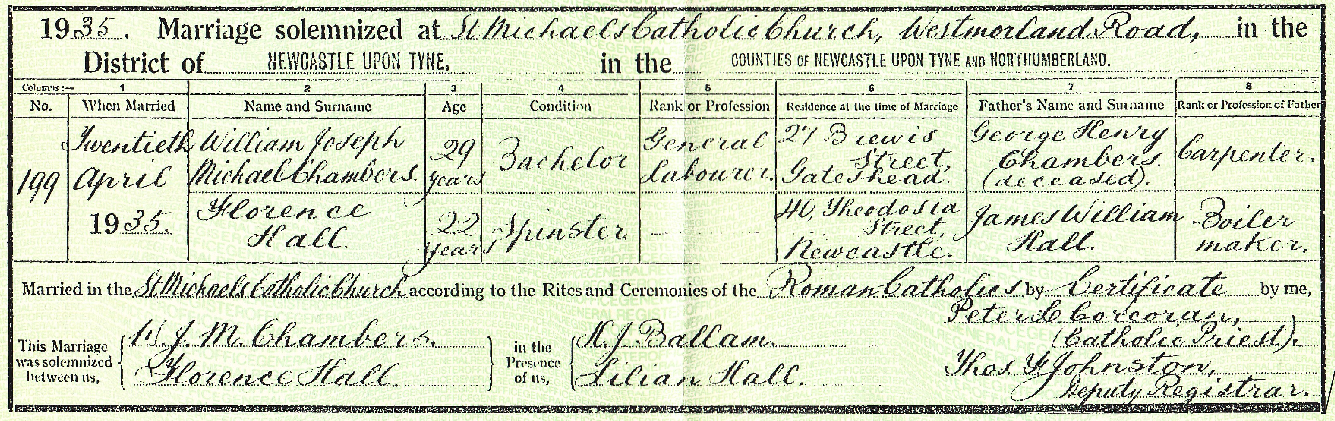 1935. Marriage solemnized at St Michaels Catholic Church, Westmorland Road, in the
District of NEWCASTLE UPON TYNE. in the COUNTIES OF NEWCASTLE UPON TYNE AND NORTHUMBERLAND.
Columns:— 1 2 3 4 5 6 7 8
No. When Married Name and Surname Age Condition Rank or Profession Residence at the time of Marriage Father's Name and Surname Rank or Profession of Father
199 Twentieth April 1935.
William Joseph
Michael Chambers.
29
years
Bachelor
General
labourer.
27 Brewis
Street,
Gateshead
George Henry
Chambers
(deceased).
Carpenter.
Florence
Hall.
22
years
Spinster.
40, Theodosia
Street,
Newcastle.
James William
Hall.
Boiler
maker.
Married in the St Michaels Catholic Church according to the Rites and Ceremonies of the Roman Catholics by Certificate by me,
Peter Corcoran,
(Catholic Priest).
This Marriage
was solemnized
between us,
W. J. M. Chambers.
Florence Hall.
in the
Presence
of us,
H. J. Ballam.
Lilian Hall.
Thos Johnston,
Deputy Registrar.